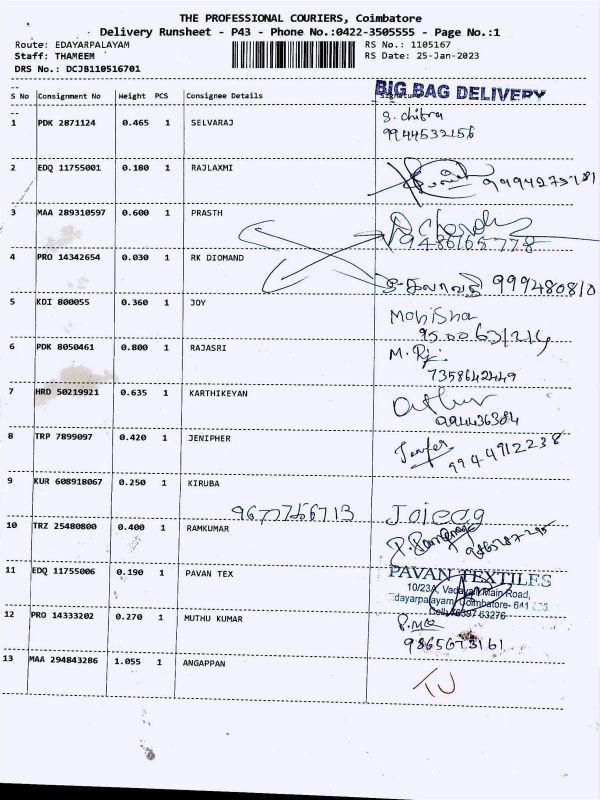 THE PROFESSIONAL COURIERS, Coimbatore
Delivery Runsheet - P43 - Phone No.:0422-3505555 - Page No.:1
Route: EDAYARPALAYAM RS No.: 1105167
Staff: THAMEEM RS Date: 25-Jan-2023
DRS No.: DCJB110516701
BIG BAG DELIVERY
S No Consignment No Weight PCS Consignee Details Signature
1 PDK 2871124 0.465 1 SELVARAJ S. chitra
9944532156
2 EDQ 11755001 0.180 1 RAJLAXMI
3 MAA 289310597 0.600 1 PRASTH
9486165778
4 PRO 14342654 0.030 1 RK DIOMAND
999480810
5 KDI 800055 0.360 1 JOY Monisha
6 PDK 8050461 0.800 1 RAJASRI M. Rji
7358642449
7 HRD 50219921 0.635 1 KARTHIKEYAN
994436384
8 TRP 7899097 0.420 1 JENIPHER Jenifer
9944912238
9 KUR 608918067 0.250 1 KIRUBA
9677756713
10 TRZ 25480800 0.400 1 RAMKUMAR
11 EDQ 11755006 0.190 1 PAVAN TEX PAVAN TEXTILES
10/23A, Vadavalli Main Road,
Edayarpalayam, Coimbatore- 641
63276
12 PRO 14333202 0.270 1 MUTHU KUMAR
9865673161
13 MAA 294843286 1.055 1 ANGAPPAN TU